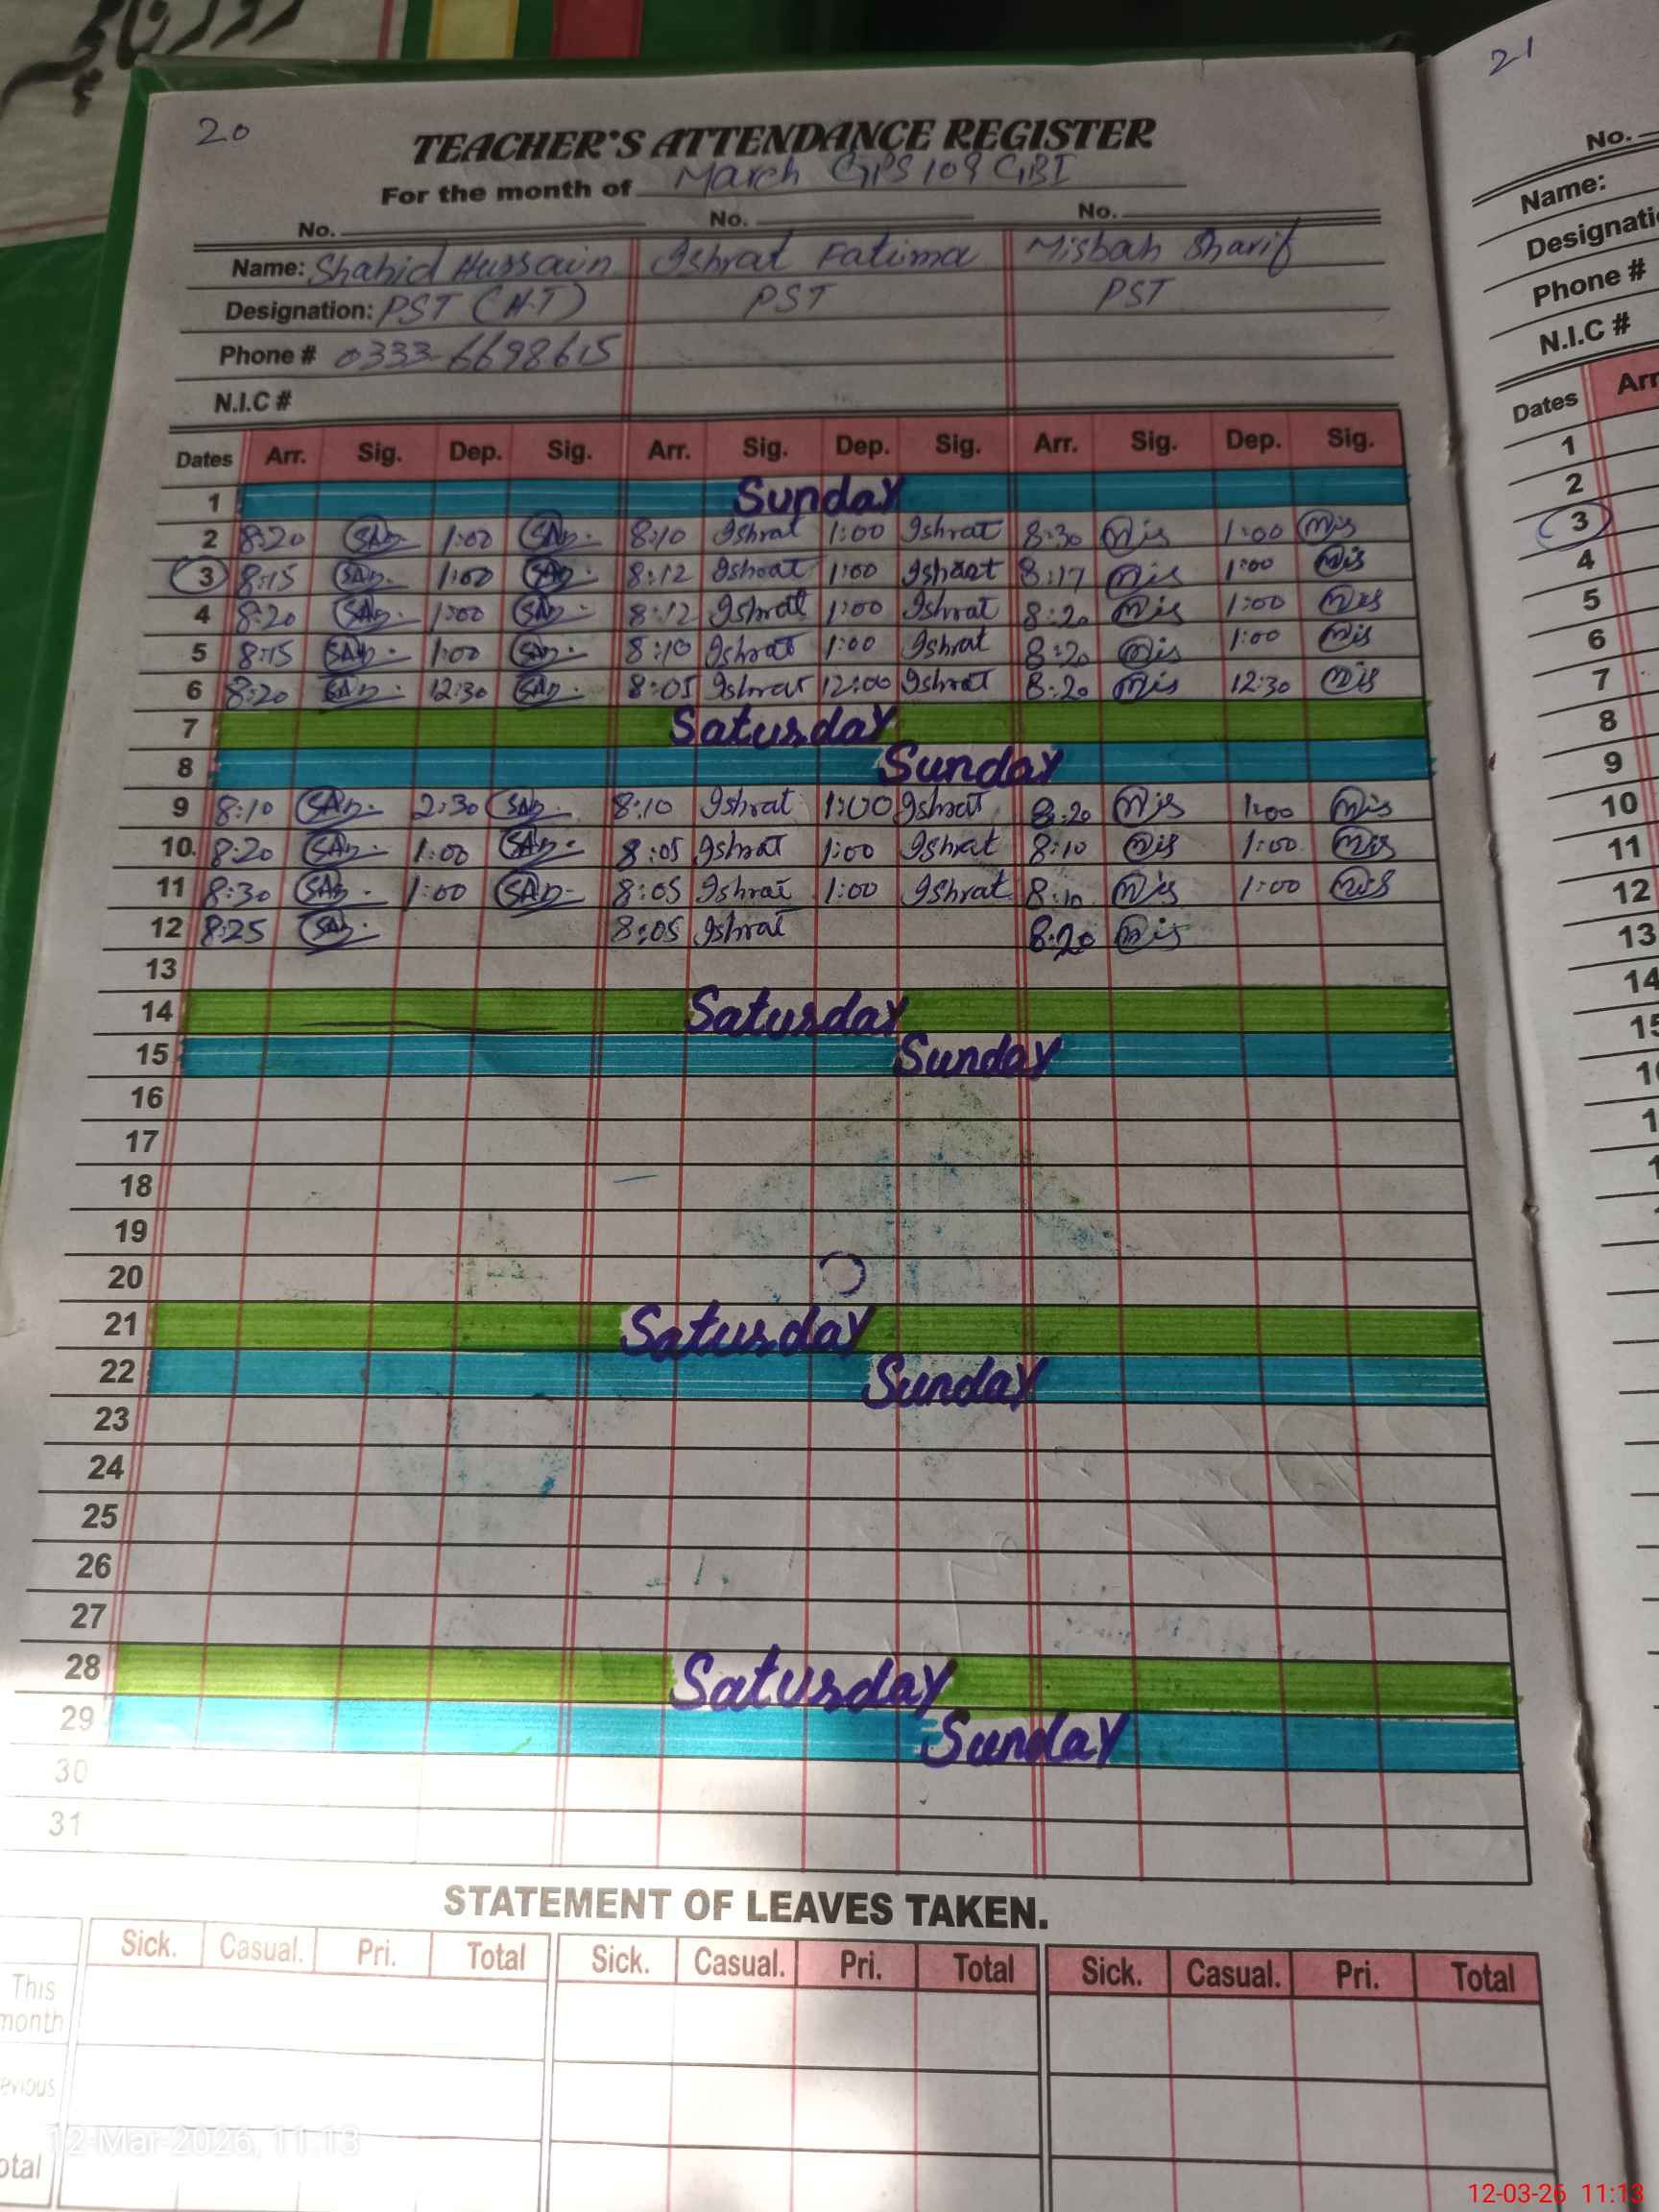 روزنامچہ
20
TEACHER'S ATTENDANCE REGISTER
For the month of March GPS 109 GBI
No. No. No.
Name: Shahid Hussain Ishrat Fatima Misbah Sharif
Designation: PST (H.T) PST PST
Phone # 0333-6698615
N.I.C #
Dates Arr. Sig. Dep. Sig. Arr. Sig. Dep. Sig. Arr. Sig. Dep. Sig.
1 Sunday
2 8:20 1:00 8:10 Ishrat 1:00 Ishrat 8:30 Mis 1:00 Mis
3 8:15 1:00 8:12 Ishrat 1:00 Ishrat 8:17 Mis 1:00 Mis
4 8:20 1:00 8:12 Ishrat 1:00 Ishrat 8:20 Mis 1:00 Mis
5 8:15 1:00 8:10 Ishrat 1:00 Ishrat 8:20 Mis 1:00 Mis
6 8:20 12:30 8:05 Ishrat 12:00 Ishrat 8:20 Mis 12:30 Mis
7 Saturday
8 Sunday
9 8:10 2:30 8:10 Ishrat 1:00 Ishrat 8:20 Mis 1:00 Mis
10 8:20 1:00 8:05 Ishrat 1:00 Ishrat 8:10 Mis 1:00 Mis
11 8:30 1:00 8:05 Ishrat 1:00 Ishrat 8:10 Mis 1:00 Mis
12 8:25 8:05 Ishrat 8:20 Mis
13
14 Saturday
15 Sunday
16
17
18
19
20
21 Saturday
22 Sunday
23
24
25
26
27
28 Saturday
29 Sunday
30
31
STATEMENT OF LEAVES TAKEN.
Sick. Casual. Pri. Total Sick. Casual. Pri. Total Sick. Casual. Pri. Total
This
month
evious
otal
12-Mar-2026, 11:13
12-03-26 11:13
21
No.
Name:
Designati
Phone #
N.I.C #
Dates Arr
1
2
3
4
5
6
7
8
9
10
11
12
13
14
15